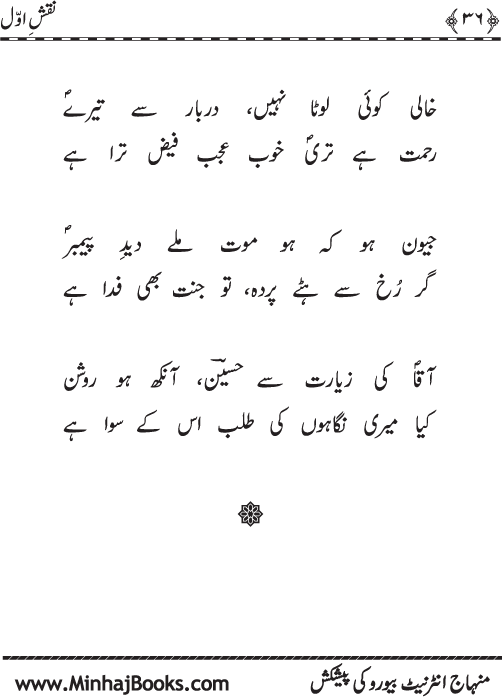 ﴿۳۶﴾
نقشِ اوّل
خالی کوئی لوٹا نہیں، دربار سے تیرےؐ
رحمت ہے تریؐ خوب عجب فیض ترا ہے
جیون ہو کہ ہو موت ملے دیدِ پیمبرؐ
گر رُخ سے ہٹے پردہ، تو جنت بھی فدا ہے
آقاؐ کی زیارت سے حسینؔ، آنکھ ہو روشن
کیا میری نگاہوں کی طلب اس کے سوا ہے
منہاج انٹرنیٹ بیورو کی پیشکش
www.MinhajBooks.com